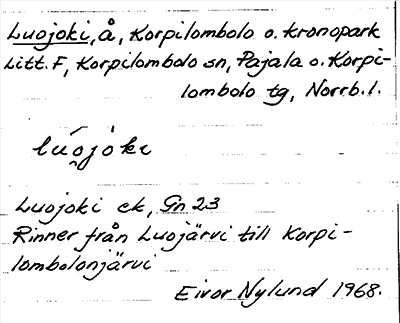 Luojoki, å, Korpilombolo o. kronopark
Litt. F, Korpilombolo sn, Pajala o. Korpi-
lombolo tg, Norrb. l.
Luojoki ek, Gn 23
Rinner från Luojärvi till Korpi-
lombolonjärvi
Eivor Nylund 1968.